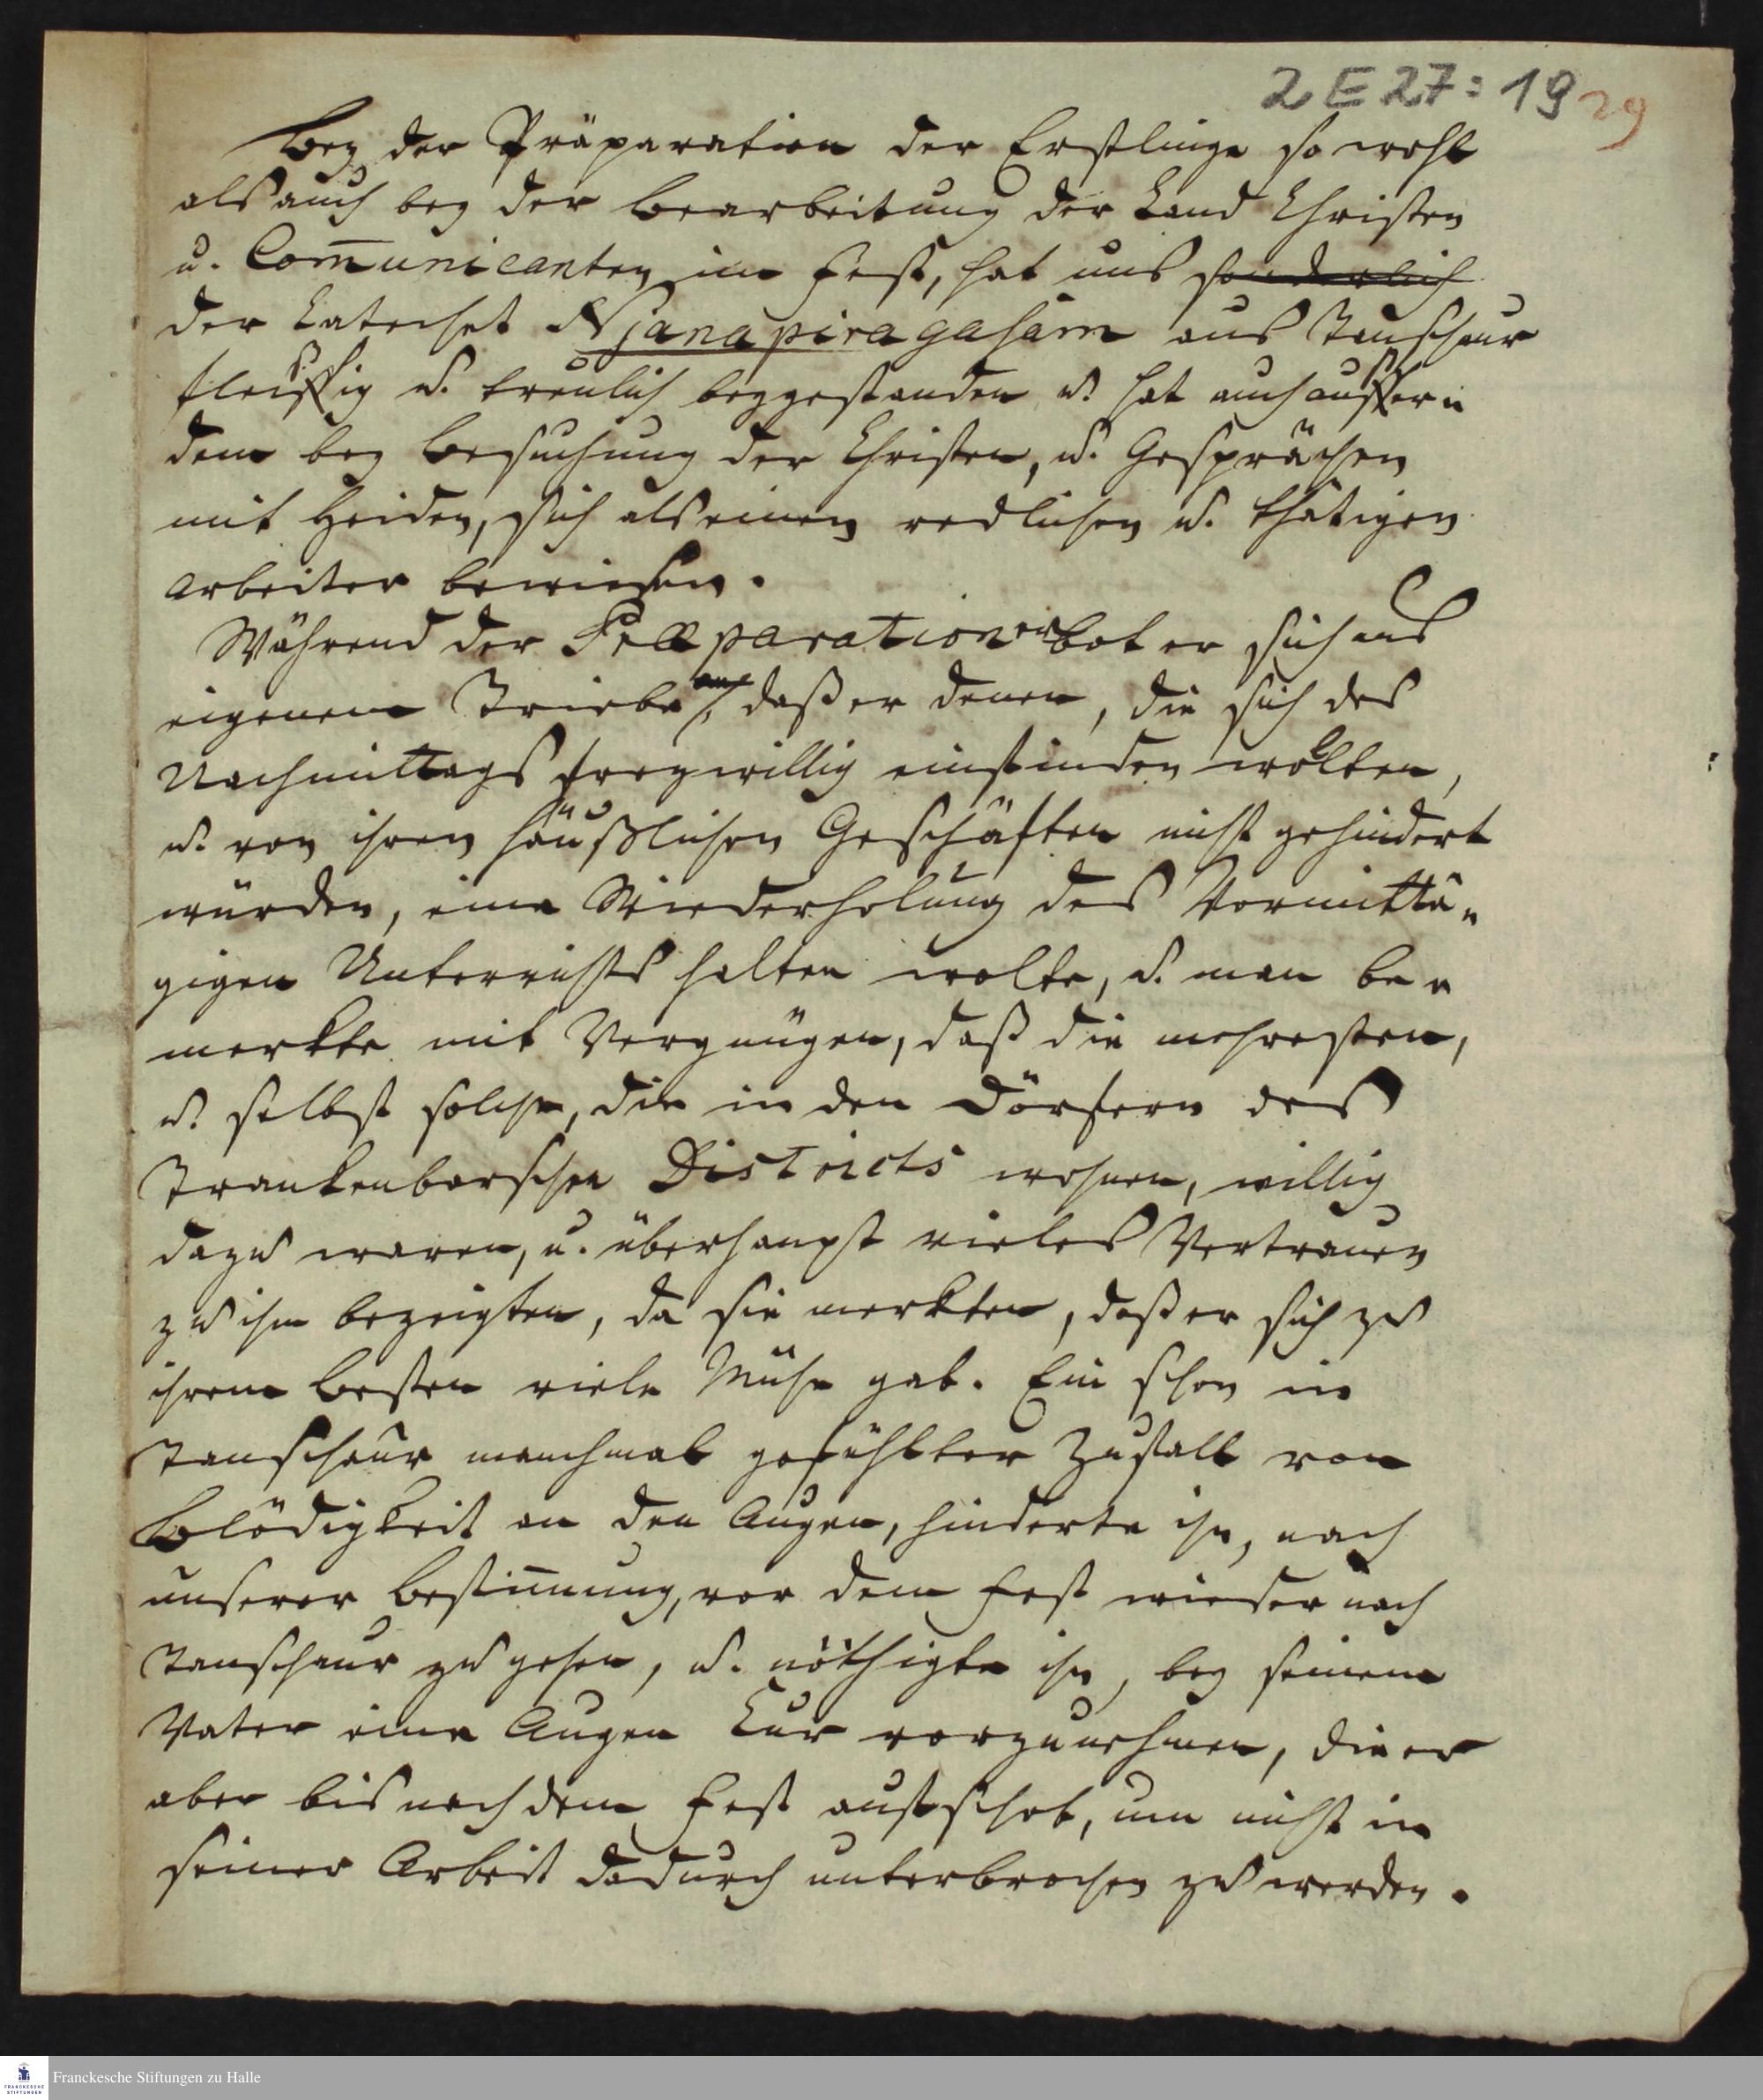 2 E 27 : 19 29
Bey der Präparation der Erstlinge so wohl
als auch bey der Bearbeitung der Land Christen
u. Com̅unicanten im Fest, hat uns sonderlich
der Catechet Njanapiragasam aus Tanschaur
fleißig u. treulich beygestanden u. hat auch ausser=
dem bey Besuchung der Christen, u. Gesprächen
mit Heiden, sich als einen redlichen u. thätigen
Arbeiter bewiesen.
Während der Præparation erbot er sich aus
eigenem Triebe, daß er denen, die sich des
Nachmittags freywillig einfinden wolten,
u. von ihren häußlichen Geschäften nicht gehindert
würden, eine Wiederholung des Vormittä=
gigen Unterrichts halten wolte, u. man be=
merkte mit Vergnügen, daß die mehresten,
u. selbst solche, die in den Dörfern des
Trankenbarschen Districts wohnen, willig
dazu waren, u. überhaupt vieles Vertrauen
zu ihm bezeigten, da sie merkten, daß er sich zu
ihrem Besten viele Mühe gab. Ein schon in
Tanschaur manchmal gefühlter Zufall von
Blödigkeit an den Augen, hinderte ihn, nach
unserer Bestim̅ung, vor dem Fest wieder nach
Tanschaur zu gehen, u. nöthigte ihn, bey seinem
Vater eine Augen Cur vorzunehmen, die er
aber bis nach dem Fest aufschob, um nicht in
seiner Arbeit dadurch unterbrochen zu werden.
Franckesche Stiftungen zu Halle
FRANCKESCHE
STIFTUNGEN